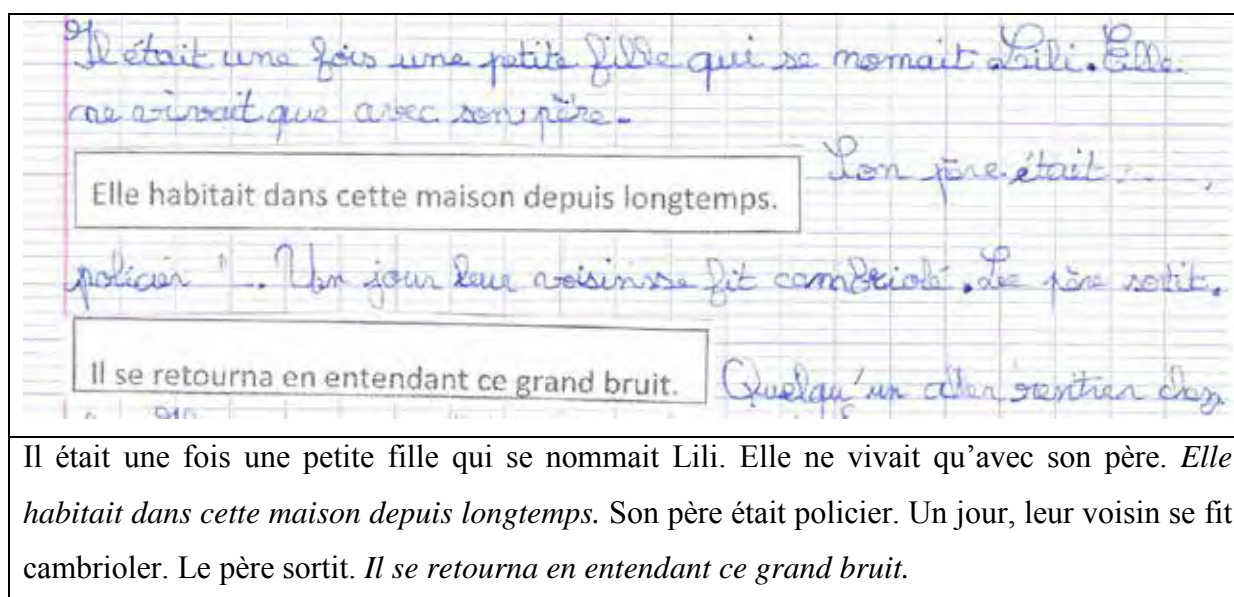 Il était une fois une petite fille qui se nomait Lili. Elle
ne vivait que avec son père.
Elle habitait dans cette maison depuis longtemps.
Son père était
policier .. Un jour leur voisin se fit cambriolé. Le père sortit.
Il se retourna en entendant ce grand bruit.
Quelqu'un rentrer chez
Il était une fois une petite fille qui se nommait Lili. Elle ne vivait qu'avec son père. Elle
habitait dans cette maison depuis longtemps. Son père était policier. Un jour, leur voisin se fit
cambrioler. Le père sortit. Il se retourna en entendant ce grand bruit.